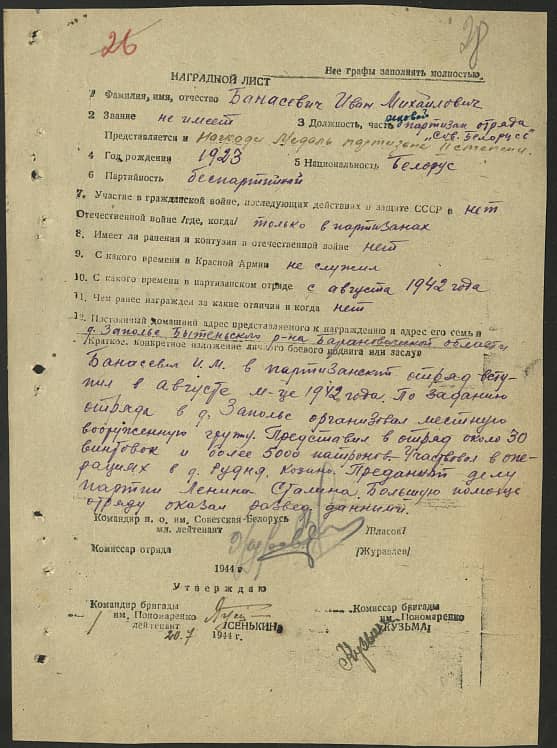 26
28
Все графы заполнять полностью.
НАГРАДНОЙ ЛИСТ
1 Фамилия, имя, отчество Банасевич Иван Михайлович
2 Звание не имеет 3 Должность, часть рядовой партизан отряда
"Сов. Белорусь"
Представляется к Награде Медаль партизана II степени.
4 Год рождения 1923 5 Национальность Белорус
6 Партийность беспартийный
7. Участие в гражданской войне, последующих действиях и защите СССР в нет
Отечественной войне /где, когда/ только в партизанах
8. Имеет ли ранения и контузии в отечественной войне нет
9. С какого времени в Красной Армии не служил
10. С какого времени в партизанском отряде с августа 1942 года
11. Чем ранее награжден за какие отличия и когда нет
12. Постоянный домашний адрес представляемого к награждению и адрес его семьи
д. Заполье Бытеньского р-на Барановичской области
/Краткое, конкретное изложение личного боевого подвига или заслуг
Банасевич И.М. в партизанский отряд всту-
пил в августе м-це 1942 года. По заданию
отряда в д. Заполье организовал местную
вооруженную группу. Представил в отряд около 30
винтовок и более 5000 патронов. Участвовал в опе-
рациях в д. Рудня, Козино. Преданный делу
партии Ленина Сталина. Большую помощь
отряду оказал развед данными.
Командир п. о. им. Советская-Белорусь
мл. лейтенант /Власов/
Комиссар отряда /Журавлев/
1944 г.
Утверждаю
Командир бригады
им. Пономаренко
лейтенант /СЕНЬКИН/
20.7 1944 г.
Комиссар бригады
им. Пономаренко
/КУЗЬМА/